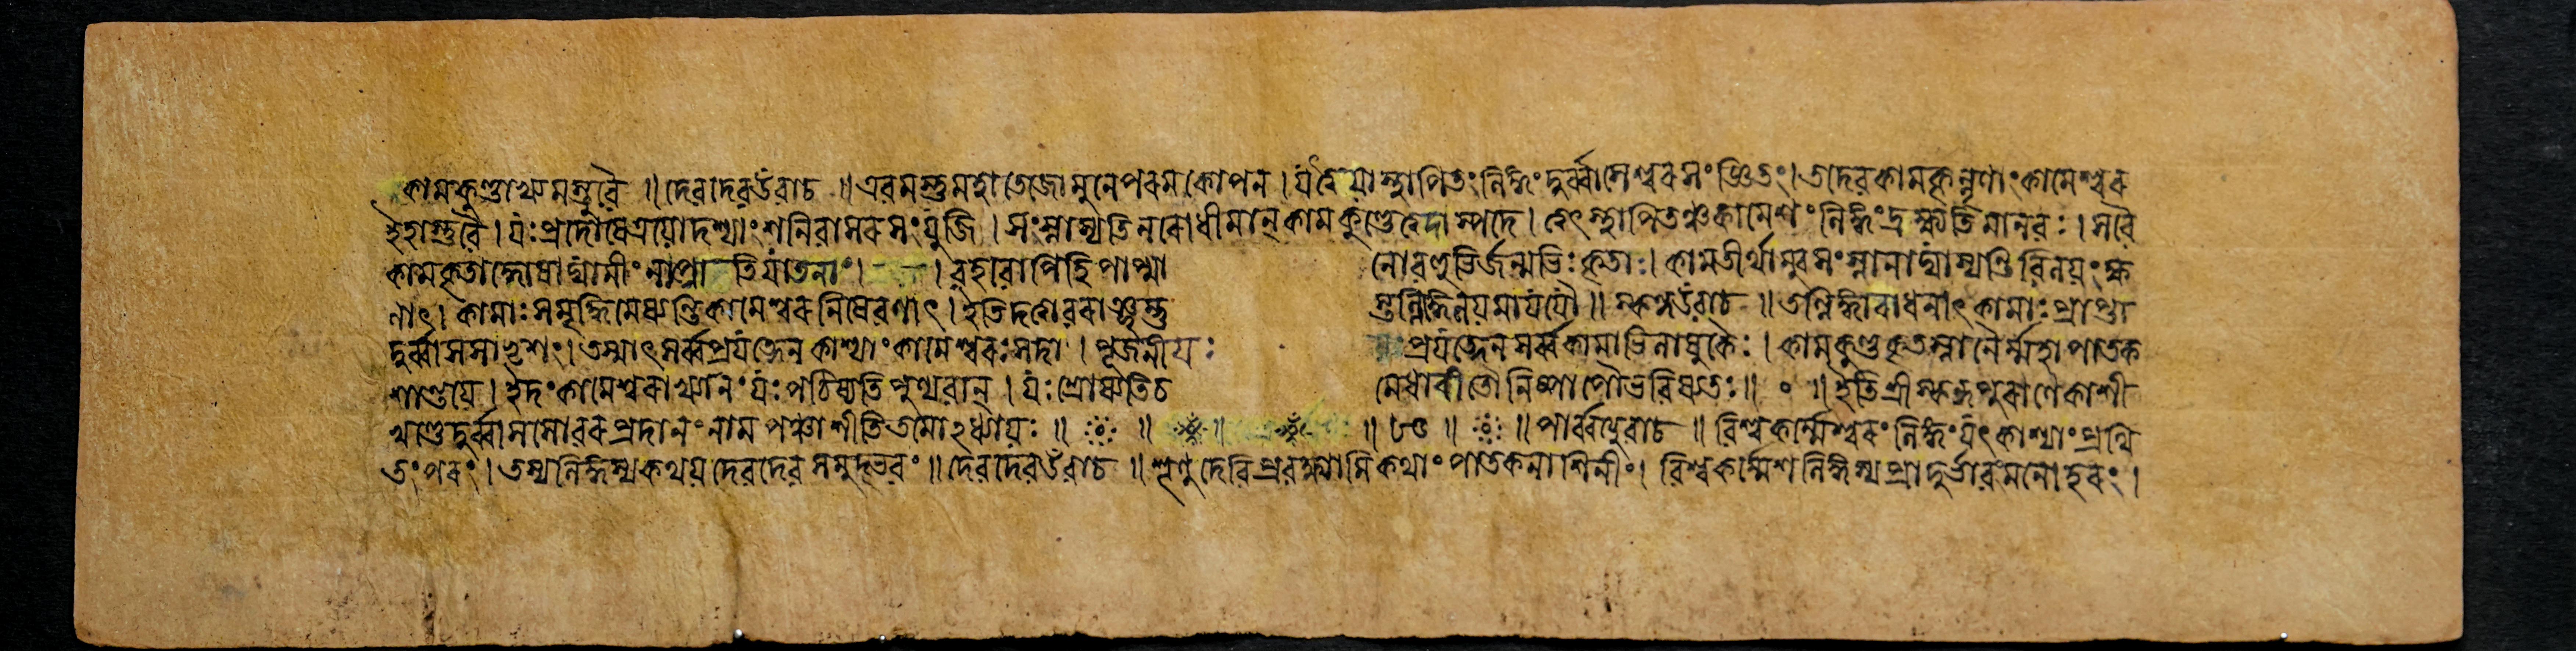 কামকুণ্ডাখ্যমস্তুবৈ ॥ দেবাদেবউবাচ ॥ এবমস্তুমহাতেজোমুনেপরমকোপন । যত্ত্বয়াস্থাপিতংলিঙ্গংদুর্ব্বাসেশ্বরসংজ্ঞিতং। তদেবকামকৃন্নৃণাংকামেশ্বর
ইহাস্তুবৈ । যঃপ্রদোষেত্রয়োদশ্যাংশনিবাসরসংযুজি । সংস্নাস্যতিনরোধীমান্কামকুণ্ডেত্বদাস্পদে । ত্বৎস্থাপিতঞ্চকামেশংলিঙ্গংদ্রক্ষ্যতিমানবঃ । সবৈ
কামকৃতাদ্দোষাদ্যামীংনাপ্স্যতিযাতনাং। । বহবোপিহিপাপ্মানোবহুভির্জন্মভিঃকৃতাঃ। কামতীর্থাম্বুসংস্নানাদ্যাস্যন্তিবিলয়ংক্ষ
ণাৎ। কামাঃসমৃদ্ধিমেষ্যন্তিকামেশ্বরনিষেবণাৎ। ইতিদত্ত্বাবরাঞ্ছম্ভুস্তল্লিঙ্গেলয়মাযযৌ ॥ স্কন্দউবাচ ॥ তল্লিঙ্গারাধনাৎকামাঃপ্রাপ্তা
দুর্ব্বাসসাভৃশং। তস্মাৎসর্ব্বপ্রযত্নেনকাশ্যাংকামেশ্বরঃসদা । পূজনীয়ঃ প্রযত্নেনসর্ব্বকামাভিলাষুকৈঃ। কামকুণ্ডকৃতস্নানৈর্ম্মহাপাতক
শান্তয়ে । ইদংকামেশ্বরাখ্যানংযঃপঠিষ্যতিপুণ্যবান্ । যঃশ্রোষ্যতিচমেধাবীতৌনিষ্পাপৌভবিষ্যতঃ॥ ০ ॥ ইতিশ্রীস্কন্দপুরাণেকাশী
খণ্ডেদুর্ব্বাসসোবরপ্রদানংনামপঞ্চাশীতিতমোঽধ্যায়ঃ ॥ ॥ ॥ ॥ ৮৫ ॥ ॥ পার্ব্বত্যুবাচ ॥ বিশ্বকর্ম্মেশ্বরংলিঙ্গংযৎকাশ্যাংপ্রথি
তংপরং। তস্যলিঙ্গস্যকথয়দেবদেবসমুদ্ভবং ॥ দেবদেবউবাচ ॥ শৃণুদেবিপ্রবক্ষ্যামিকথাংপাতকনাশিনীং। বিশ্বকর্ম্মেশলিঙ্গস্যপ্রাদুর্ভাবংমনোহরং।